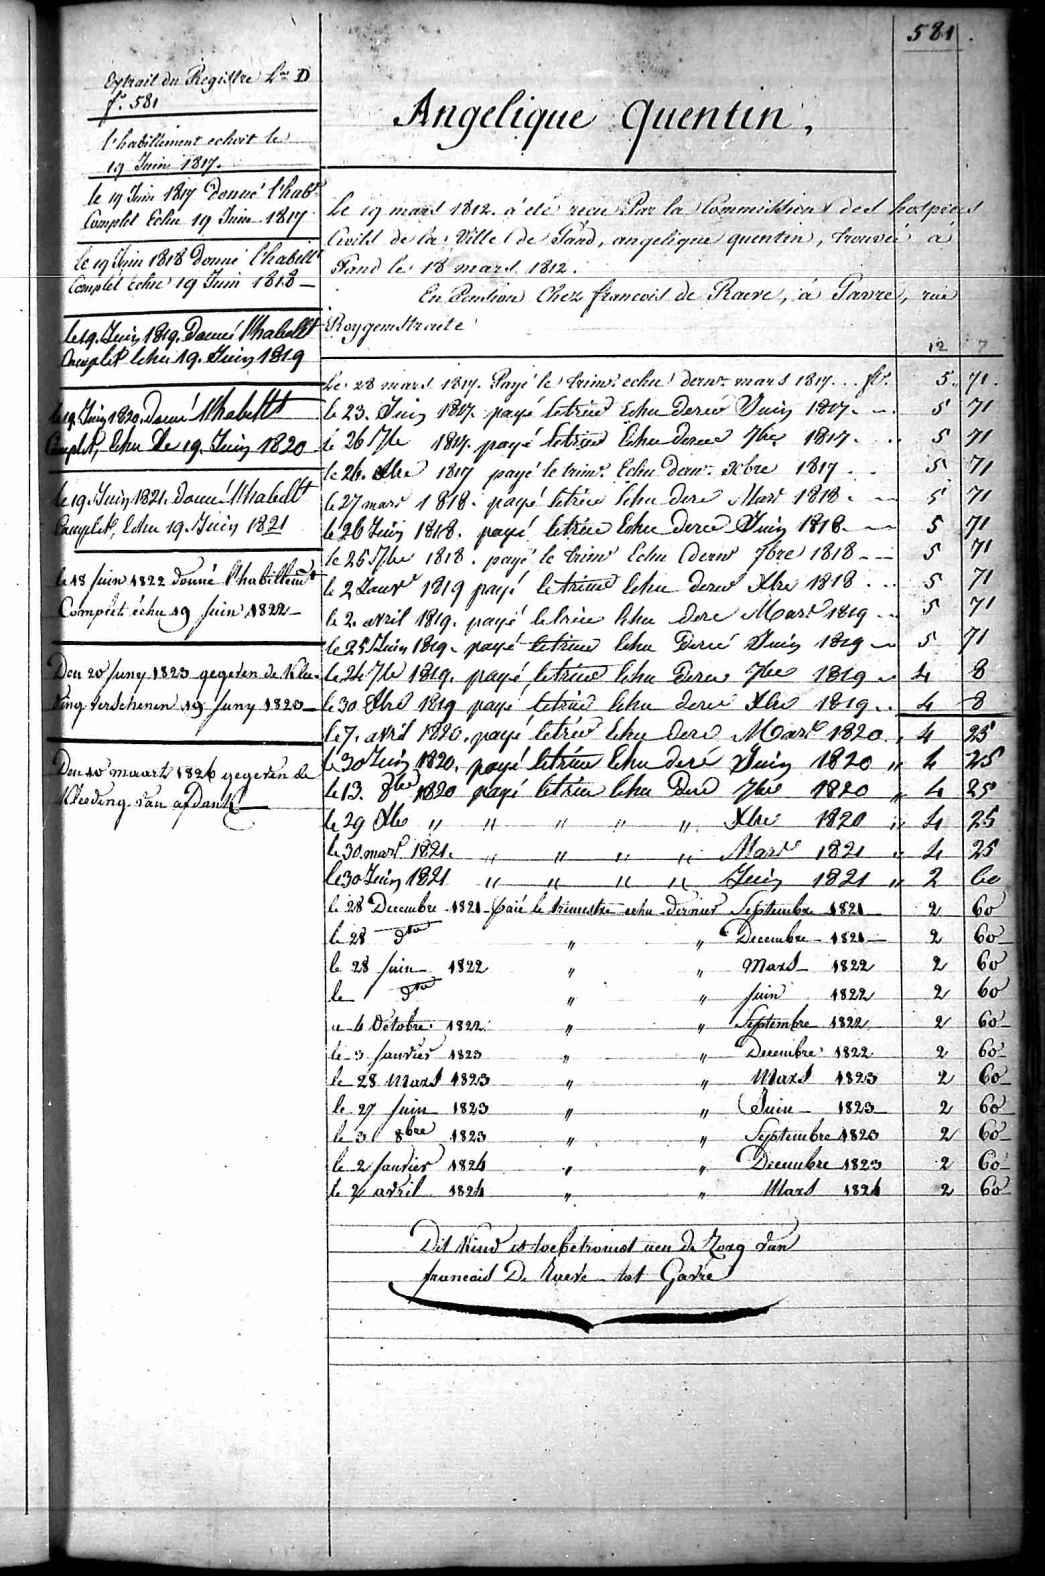 581.
Extrait du Registre Lra D
f° 581
l'habillement echoit le
19 Juin 1817.
le 19 Juin 1817 Donné l'habt
Complet Echu 19 Juin 1817
le 19 Juin 1818 Donné l'habillt
Complet echu 19 Juin 1818
le 19. Juin 1819. Donné l'habillt
Complet Echu 19. Juin 1819
le 19. Juin 1820. donné l'habillt
Complet, Echu le 19. Juin 1820
le 19. Juin 1821. donné l'habillt
Complet, Echu 19. Juin 1821
le 18 Juin 1822 donné l'habillemt
Complet échu 19 Juin 1822
Den 20 Juny 1823 gegeven de Klee-
ding verschenen 19 Juny 1823
Den 10 maart 1826 gegeven de
Kleeding van afdank
Angelique Quentin,
Le 19 mars 1812. a été recu Par la Commission des hospices
Civils de la Ville de Gand, angelique quentin, trouvée à
Gand le 18 mars 1812.
En Pension Chez francois de Raeve, à Gavre, rue
Roygemstraete
12 7
Le 28 mars 1817. Payé le trimr echu dernr mars 1817 . . . fl. 5. 71.
le 23. Juin 1817. payé le trim Echu dernr Juin 1817. 5 71
le 26 7bre 1817. payé le trim Echu dernr 7bre 1817. 5 71
le 26. Xbre 1817 payé le trimr Echu dernr Xbre 1817 . . 5 71
le 27 mars 1818. payé le trim Echu dernr Mars 1818. 5 71
le 26 Juin 1818. payé le trim Echu dernr Juin 1818. 5 71
le 25 7bre 1818. payé le trimr Echu dernr 7bre 1818 5 71
le 2 Janvr 1819 payé le trim Echu dernr Xbre 1818 . . . 5 71
le 2. avril 1819. payé le trim Echu dernr Mars 1819 5 71
le 25 Juin 1819. payé le trim Echu dernr Juin 1819 5 71
le 24 7bre 1819. payé le trim Echu dernr 7bre 1819 4 8
le 30 Xbre 1819 payé le trim Echu dernr Xbre 1819 . . 4 8
le 7. avril 1820. payé le trim Echu dernr Mars 1820 4 25
le 30 Juin 1820. payé le trim Echu dernr Juin 1820 " 4 25
le 13. 8bre 1820 payé le trim Echu dernr 7bre 1820 " 4 25
le 29 Xbre " " " " " Xbre 1820 " 4 25
le 30. mars 1821. " " " " Mars 1821 " 4 25
le 30 Juin 1821 " " " " Juin 1821 " 2 60
le 28 Decembre 1821 paié le trimestre echu dernier Septembre 1821 2 60
le 28 dto " " Decembre 1821 2 60
le 28 Juin 1822 " " Mars 1822 2 60
le dto " " Juin 1822 2 60
le 6 Octobre 1822 " " Septembre 1822 2 60
le 3 Janvier 1823 " " Decembre 1822 2 60
le 28 Mars 1823 " " Mars 1823 2 60
le 27 Juin 1823 " " Juin 1823 2 60
le 3 8bre 1823 " " Septembre 1823 2 60
le 2 Janvier 1824 " " Decembre 1823 2 60
le 2 avril 1824 " " Mars 1824 2 60
Dit Kind is toebetrouwt aen de Zorg van
francois De Raeve tot Gavre